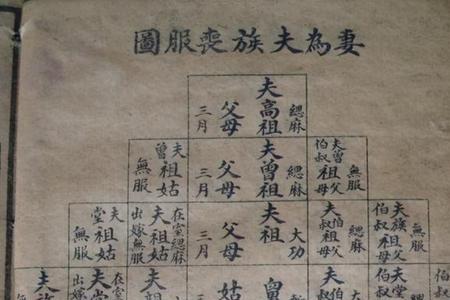 妻為夫族喪服圖
緦麻
夫高祖
父母
三月
無服
夫曾伯叔祖父母
緦麻
夫曾祖
父母
三月
夫曾祖姑
無服
無服
夫族伯叔祖父母
緦麻
夫伯叔祖父母
大功
夫祖
父母
三月
在室緦麻
夫祖姑
出嫁無服
夫堂祖姑
無服
夫堂
伯叔
夫伯
叔
舅
姑
夫親
在室
夫堂
夫族